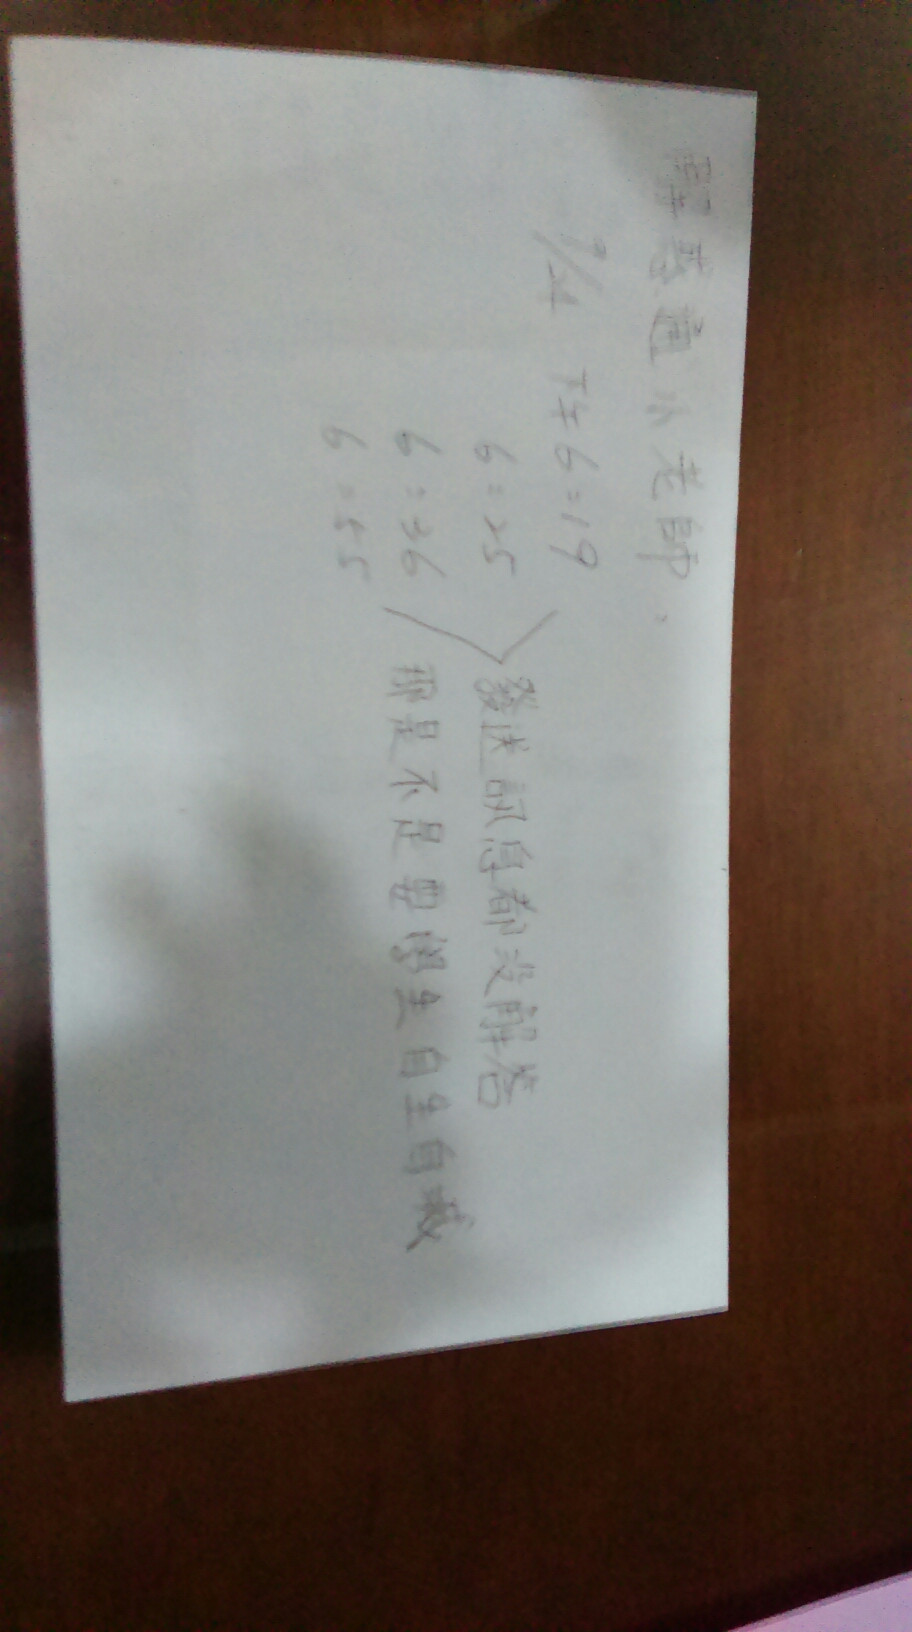 舉惑通小老師、
9/24 下午6:19
6:25 發送訊息都沒解答
6:36 那是不是要學生自生自滅
6:55